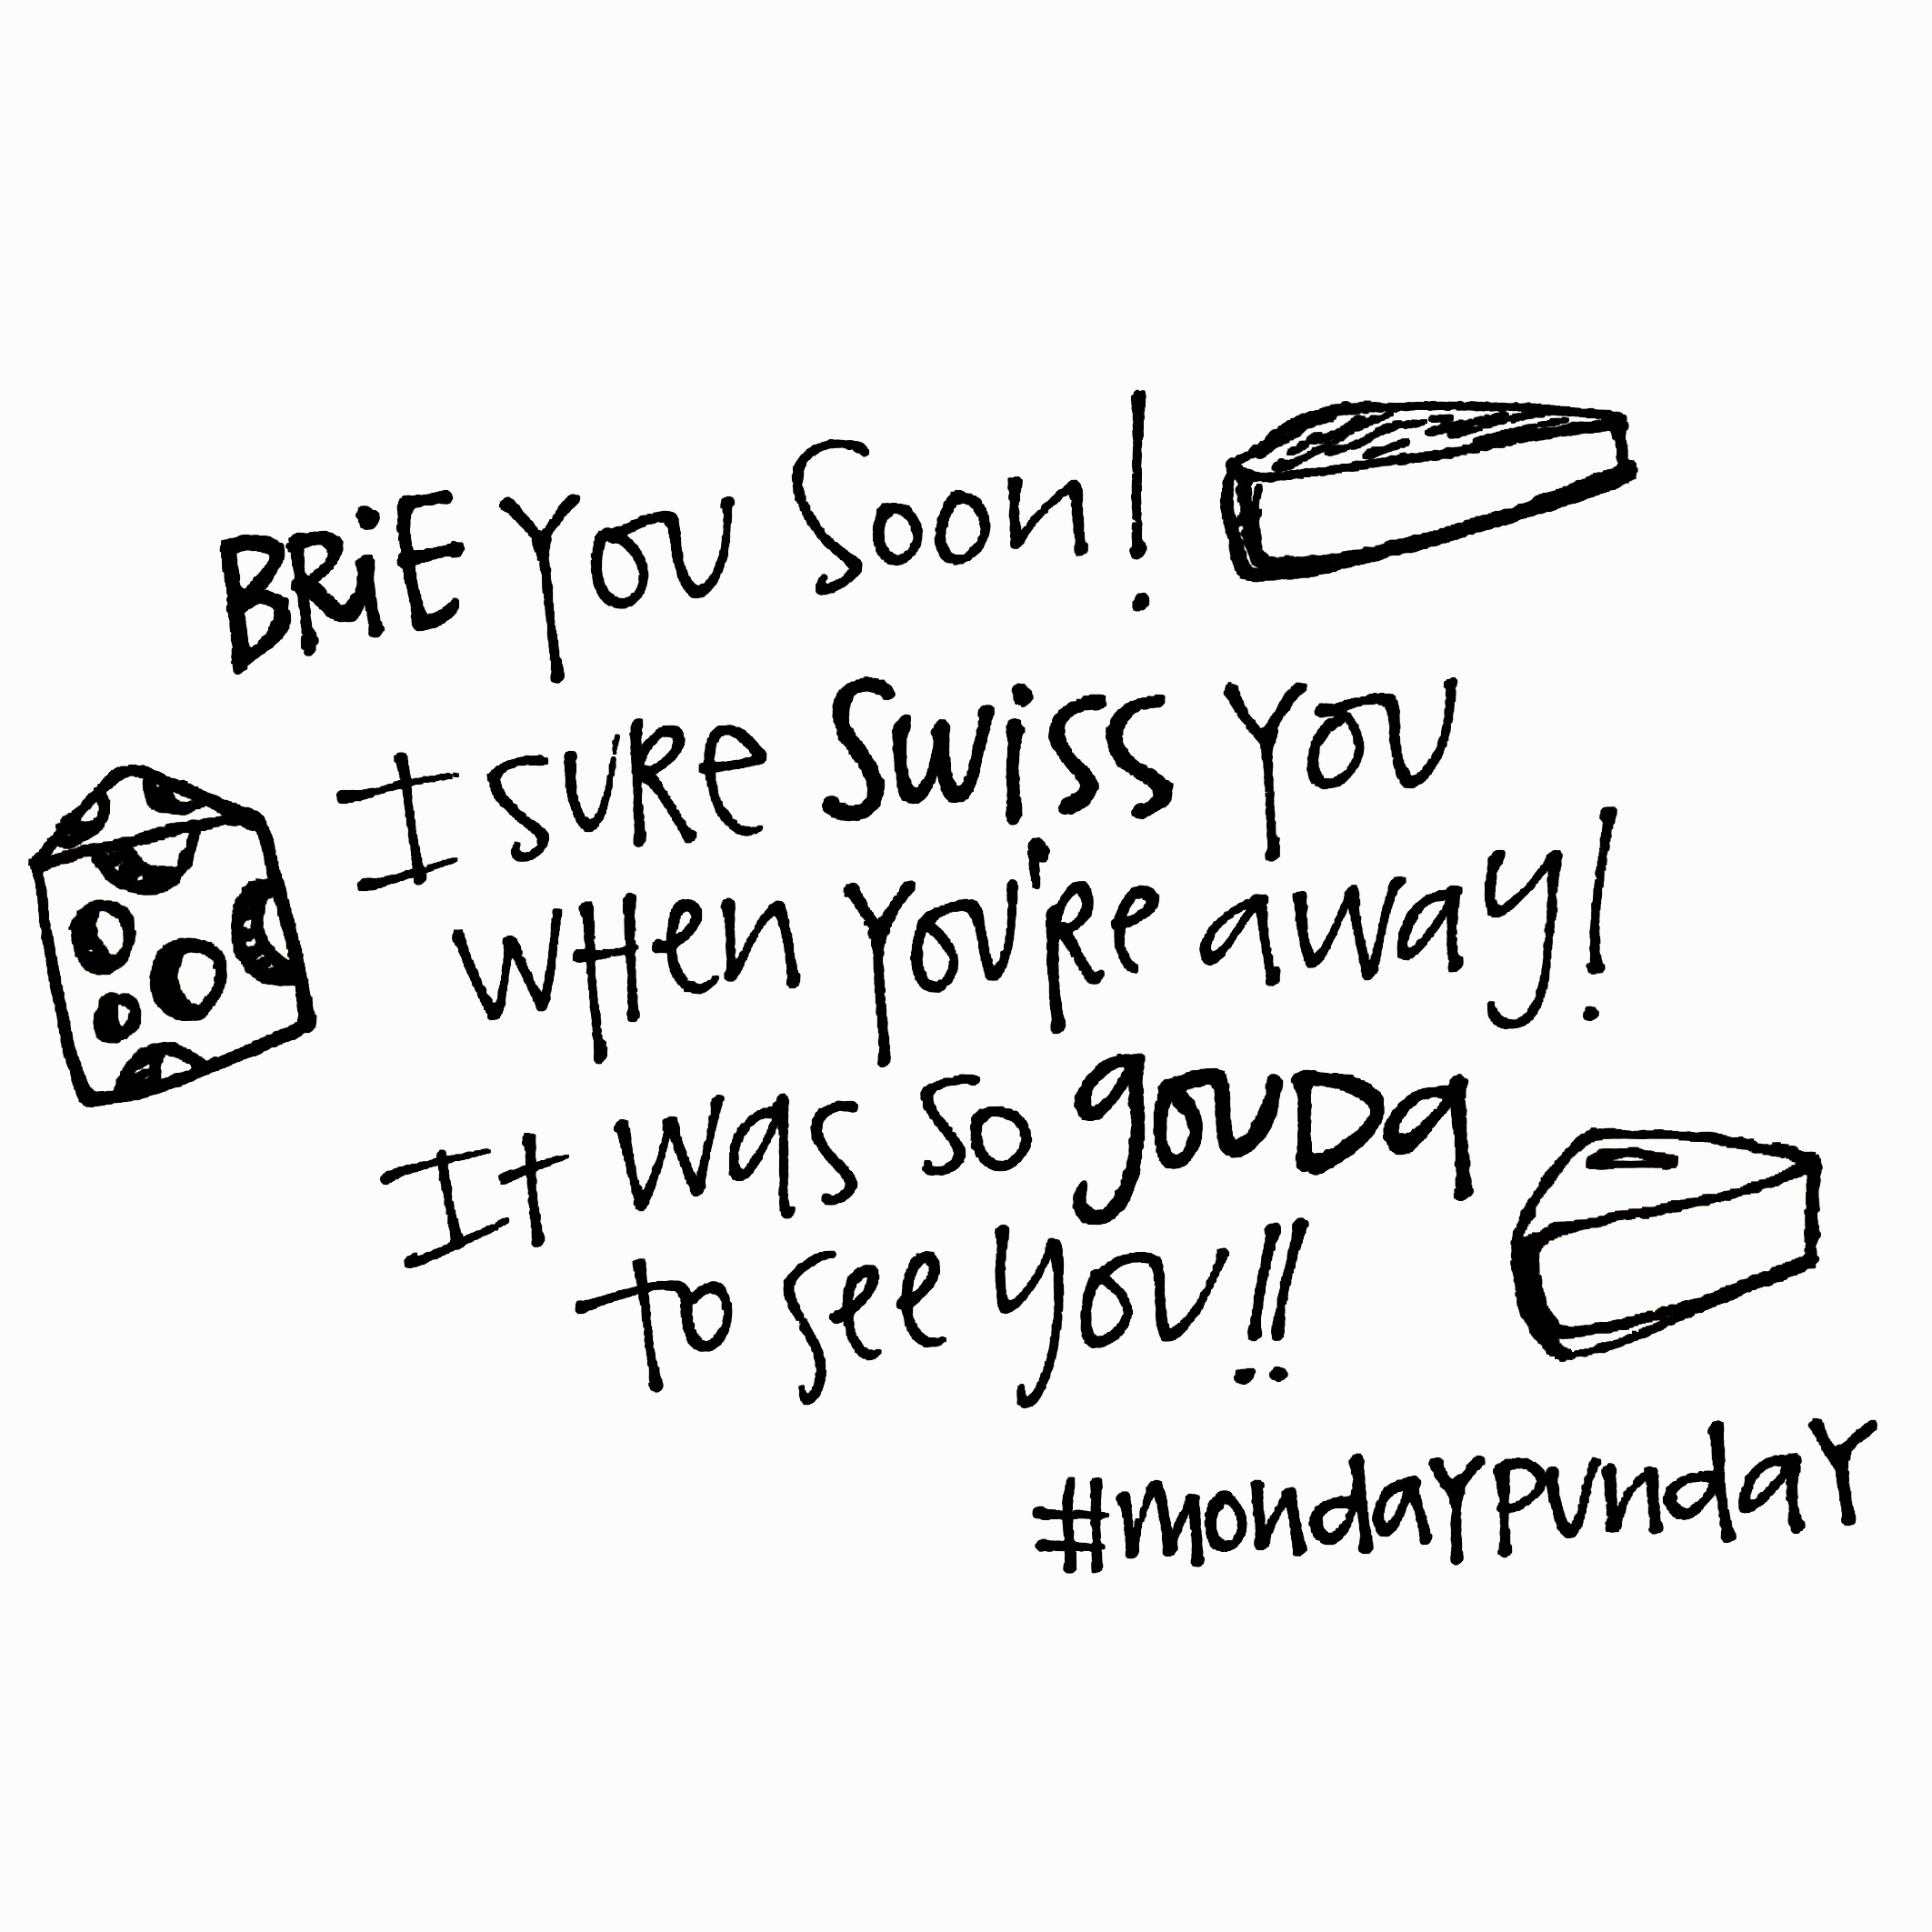 BRiE You Soon!
I suRe Swiss You
wHen You're away!
It was so gouDa
to see you!!
#mondaYPundaY